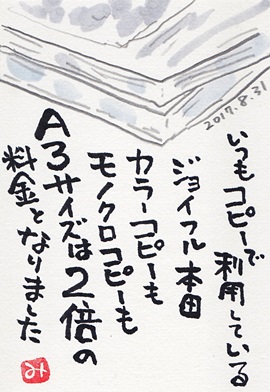 2017.8.31
いつもコピーで
利用している
ジョイフル本田
カラーコピーも
モノクロコピーも
A3サイズは2倍の
料金となりました
み